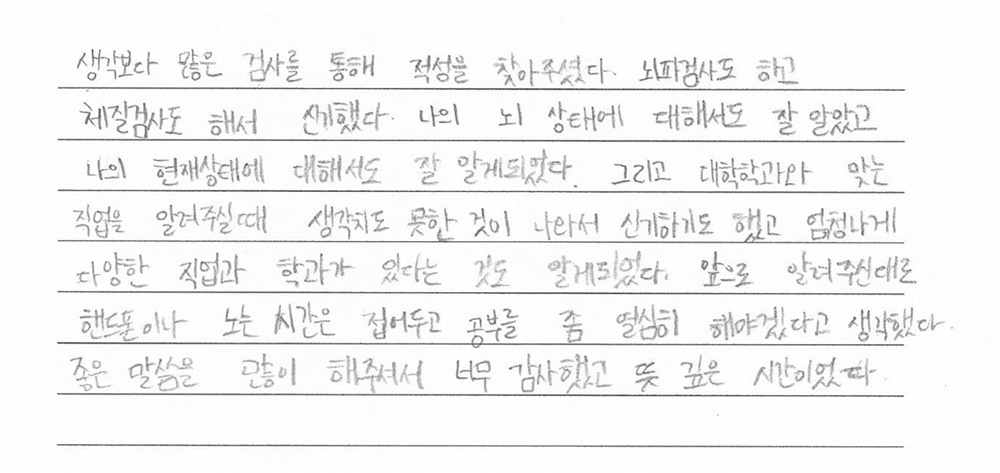 생각보다 많은 검사를 통해 적성을 찾아주셨다. 뇌파검사도 하고
체질검사도 해서 신기했다. 나의 뇌 상태에 대해서도 잘 알았고
나의 현재상태에 대해서도 잘 알게되었다. 그리고 대학학과와 맞는
직업을 알려주실때 생각치도 못한 것이 나와서 신기하기도 했고 엄청나게
다양한 직업과 학과가 있다는 것도 알게되었다. 앞으로 알려주신대로
핸드폰이나 노는 시간은 접어두고 공부를 좀 열심히 해야겠다고 생각했다.
좋은 말씀을 많이 해주셔서 너무 감사했고 뜻 깊은 시간이었다.